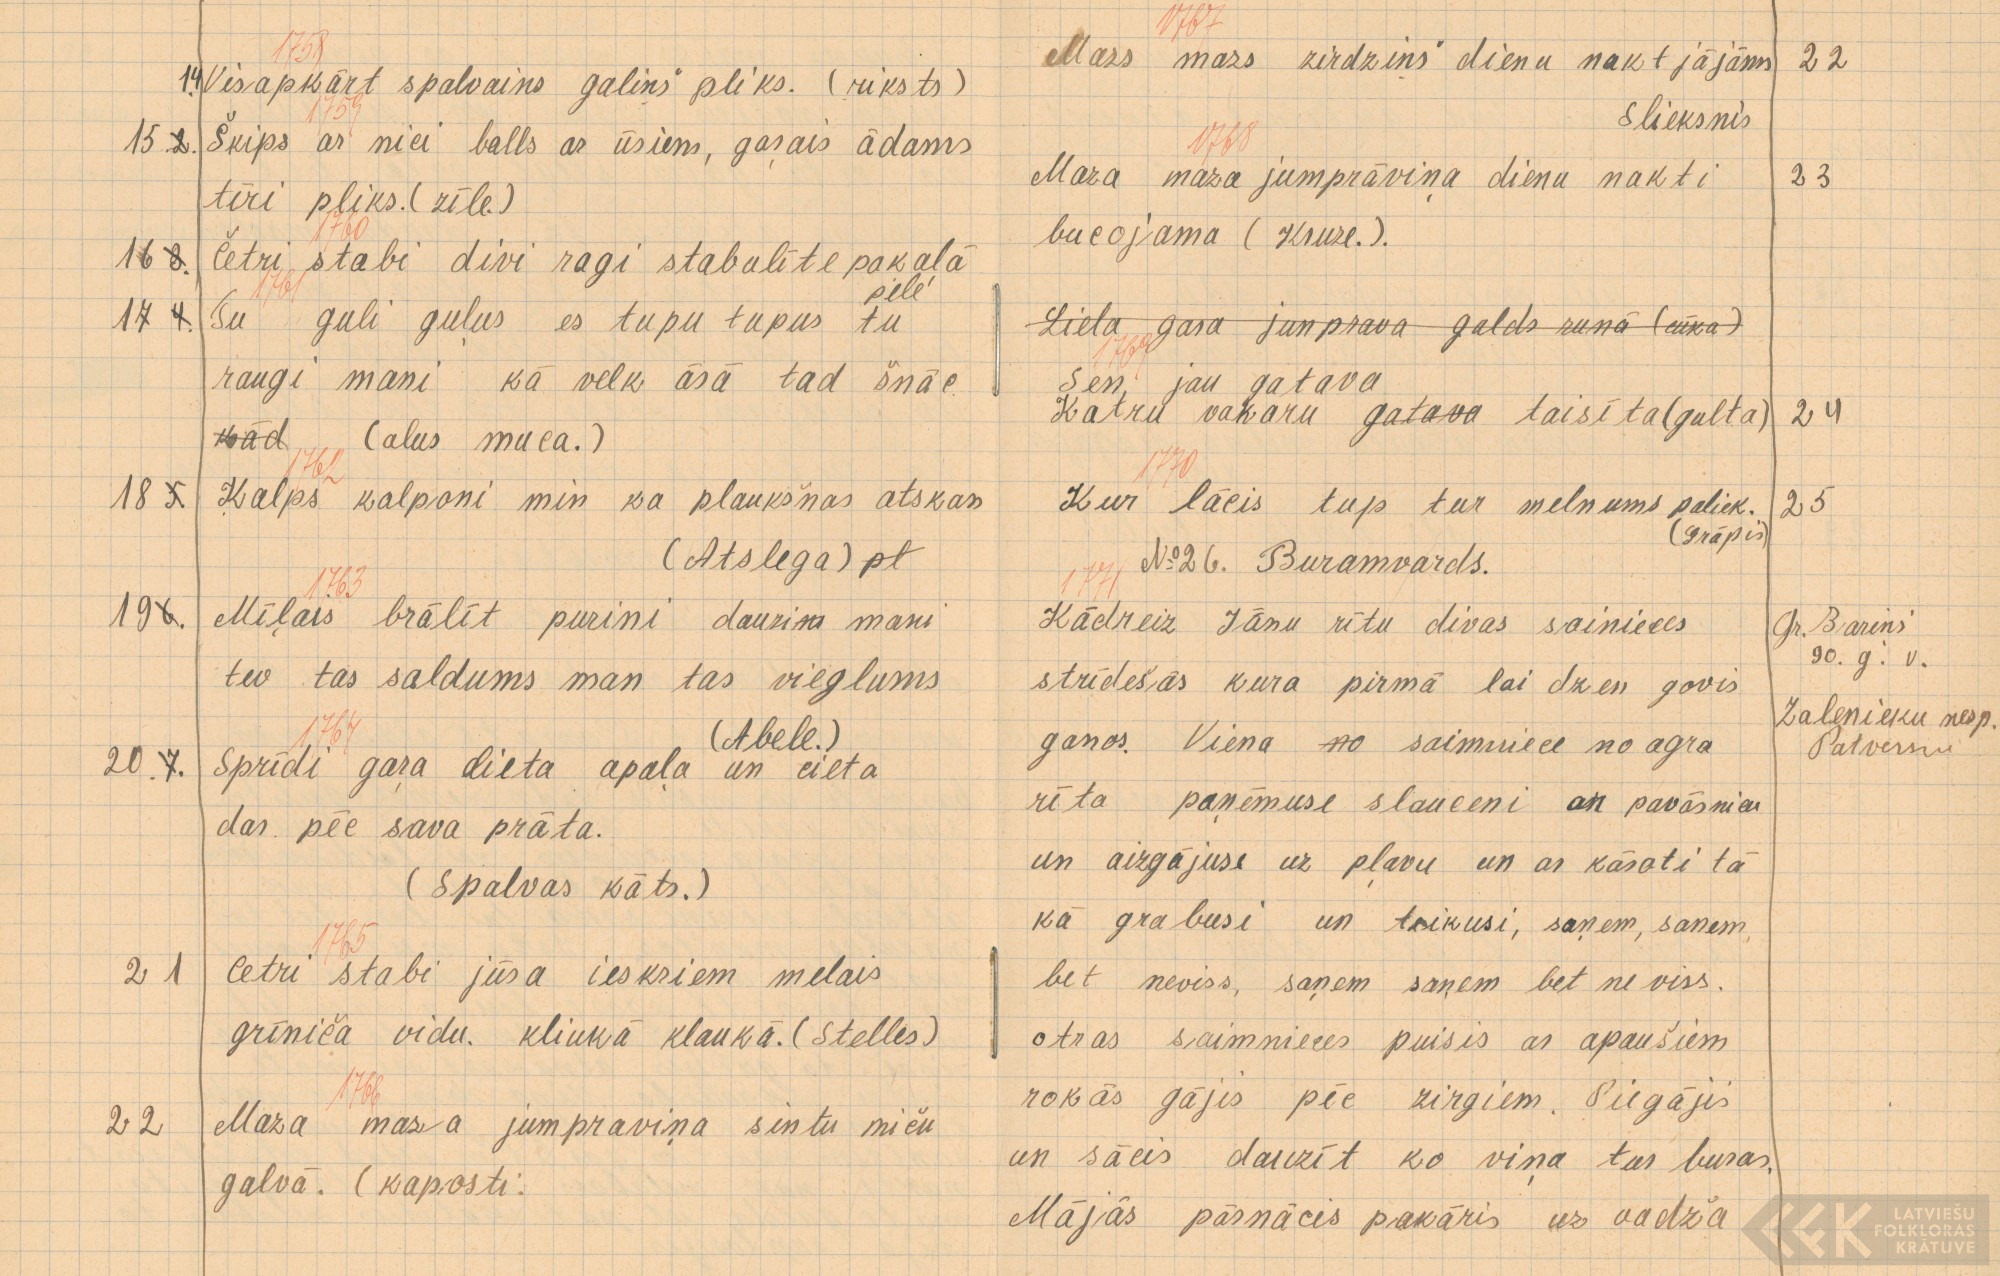 1758
14. Visapkārt spalvains galiņš pliks. (riksts)
1759
15 2. Šķips ar nici balls ar ūsiem, gaŗais ādams
tīri pliks. (zīle.)
1760
16 3. Četri stabi divi ragi stabulīte pakaļā
1761
pele
17 4. Tu guli guļus es tupu tupus tu
raugi mani kā velk āsā tad šnāc
kād (alus muca.)
1762
18 5. Kalps kalponi min ka plaukšnas atskan
(Atslega) pt
1763
19 6. Mīļais brālīt purini dauzini mani
tev tas saldums man tas vieglums
(Abele.)
1764
20. 7. Sprīdi gaŗa dieta apaļa un cieta
dar pēc sava prāta.
(Spalvas kāts.)
1765
21 Cetri stabi jūra ieskriem melais
grīniča vidu. kliukā klaukā. (Stelles)
1766
22 Maza maza jumpraviņa simtu miču
galvā. (kaposti.
1767
Mazs mazs zirdziņš dienu nakt jājams 22
Slieksnis
1768
Maza maza jumprāviņa dienu nakti 23
bucojama (Kruze.).
Liela gara jumprava galds runā (rīka)
1769
Sen jau gatava
Katru vakaru gatava taisīta (gulta) 24
1770
Kur lācis tup tur melnums paliek. 25
(Grāpis)
№ 26. Buramvards.
1771
Kādreiz Jāņu rītu divas sainieces
strīdešās kura pirmā lai dzen govis
ganos. Viena no saimniece no agra
rīta paņēmuse slauceni ar pavāsnicu
un aizgājuse uz pļavu un ar kāroti tā
kā grabusi un teikusi, saņem, saņem,
bet neviss, saņem saņem bet ne viss.
otras saimnieces puisis ar apaušiem
rokās gājis pēc zirgiem. Piegājis
un sācis dauzīt ko viņa tur buras.
Mājās pārnācis pakāris uz vadža
Gr. Bariņš
90. g. v.
Zalenieku nesp.
Patversmē
LATVIEŠU
FOLKLORAS
KRĀTUVE